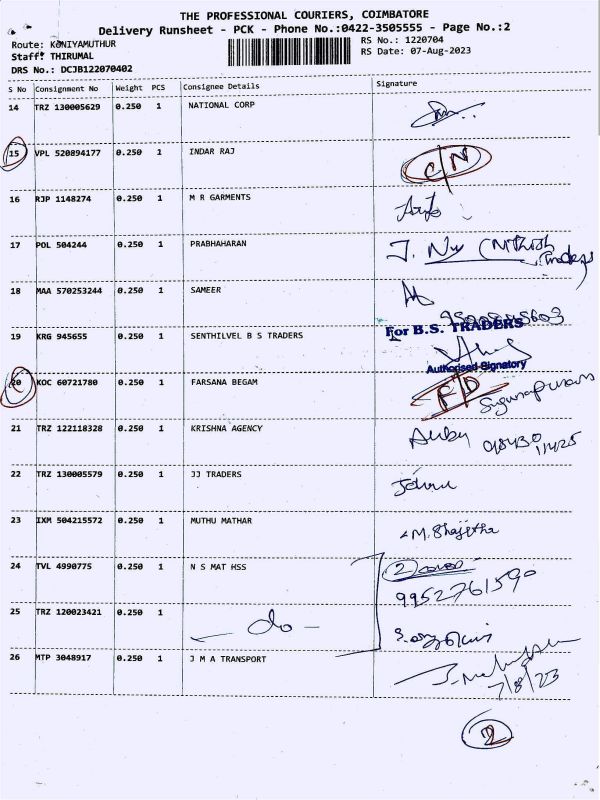 THE PROFESSIONAL COURIERS, COIMBATORE
Delivery Runsheet - PCK - Phone No.:0422-3505555 - Page No.:2
Route: KONIYAMUTHUR RS No.: 1220704
Staff: THIRUMAL RS Date: 07-Aug-2023
DRS No.: DCJB122070402
S No Consignment No Weight PCS Consignee Details Signature
14 TRZ 130005629 0.250 1 NATIONAL CORP
15 VPL 520894177 0.250 1 INDAR RAJ C/N
16 RJP 1148274 0.250 1 M R GARMENTS
17 POL 504244 0.250 1 PRABHAHARAN
18 MAA 570253244 0.250 1 SAMEER
For B.S. TRADERS
19 KRG 945655 0.250 1 SENTHILVEL B S TRADERS
Authorised Signatory
20 KOC 60721780 0.250 1 FARSANA BEGAM F/D
21 TRZ 122118328 0.250 1 KRISHNA AGENCY
22 TRZ 130005579 0.250 1 JJ TRADERS
23 IXM 504215572 0.250 1 MUTHU MATHAR
24 TVL 4990775 0.250 1 N S MAT HSS 2 cover
9952761590
25 TRZ 120023421 0.250 1 - do -
26 MTP 3048917 0.250 1 J M A TRANSPORT
7/8/23
2